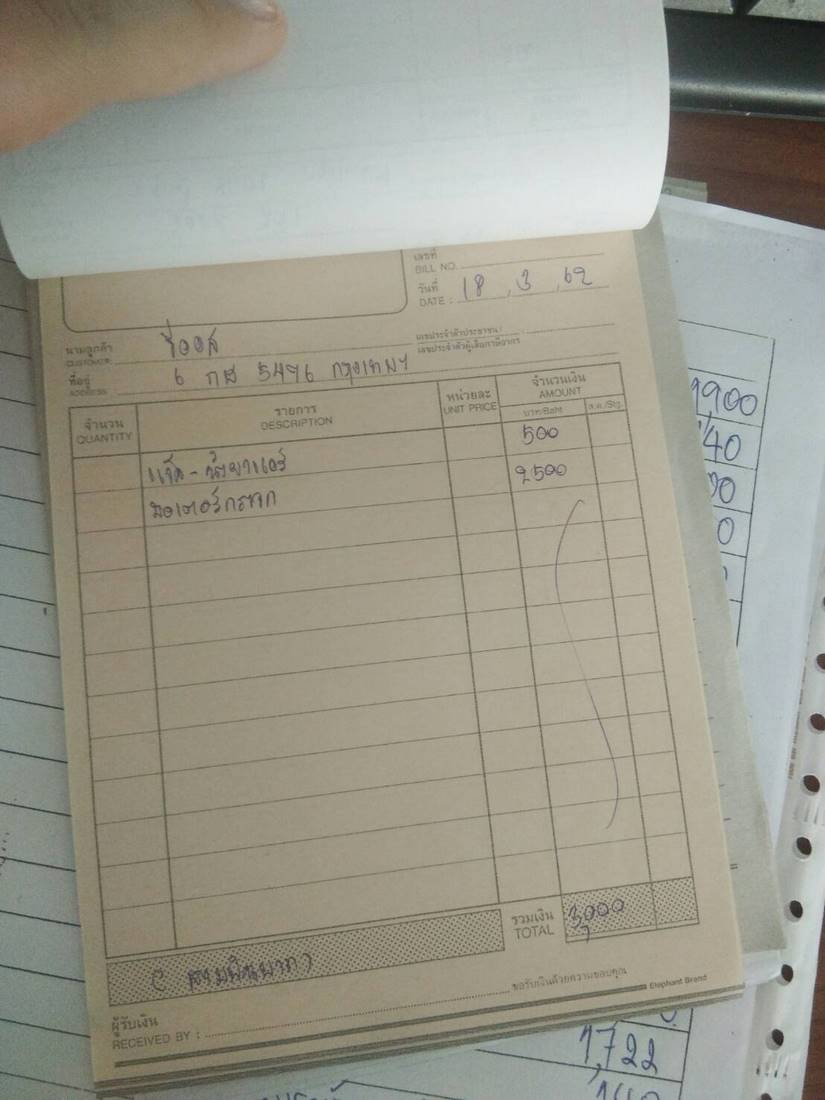 เลขที่
BILL NO.
วันที่
DATE : 18 , 3 , 62
นามลูกค้า วีออส
CUSTOMER
เลขประจำตัวประชาชน /
เลขประจำตัวผู้เสียภาษีอากร
ที่อยู่ 6 กส 5496 กรุงเทพฯ
ADDRESS
จำนวน รายการ หน่วยละ จำนวนเงิน
QUANTITY DESCRIPTION UNIT PRICE AMOUNT
บาท/Baht ส.ต./Stg.
500
2500
มอเตอร์กระจก
รวมเงิน 3,000
TOTAL
(สามพันบาท)
ขอรับเงินด้วยความขอบคุณ
Elephant Brand
ผู้รับเงิน
RECEIVED BY :
1,900
1,722